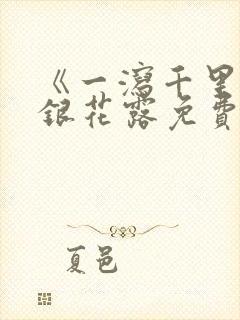 《一瀉千里
銀花露免費
夏邑